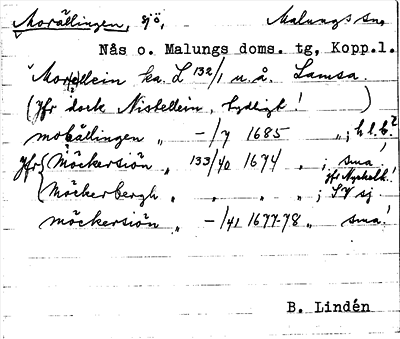 Morällingen, sjö, Malungs sn,
Nås o. Malungs doms. tg, Kopp.l.
Morellein ka. L 132/1 u.å. Lamsa.
(Jfr dock Nistellein, tydligt! )
mokällingen „ -/7 1685 „; h l. b?
Jfr { Möckersiön „ 133/40 1674 „; sma!
jfr
Möckerbergh „ „ „ „; SV sj.
möckersiön „ -/41 1677-78 „ sma!
B. Lindén